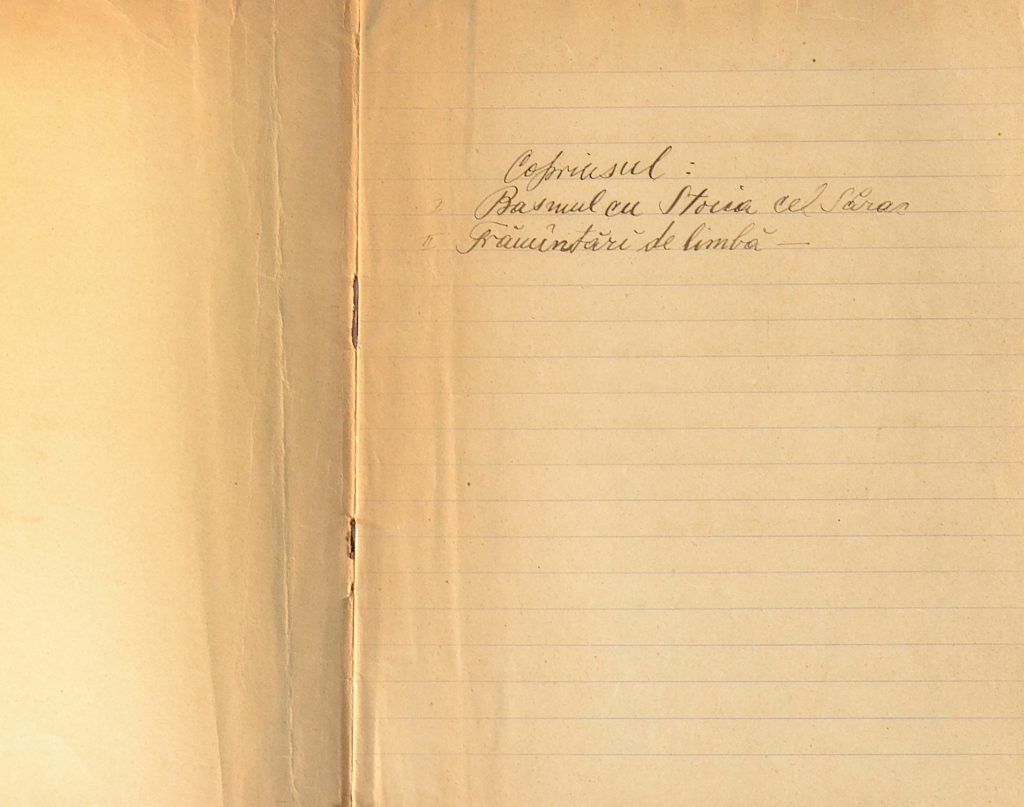 Coprinsul :
I Basmul cu Stoica cel Sărac
II Frămîntări de limbă —